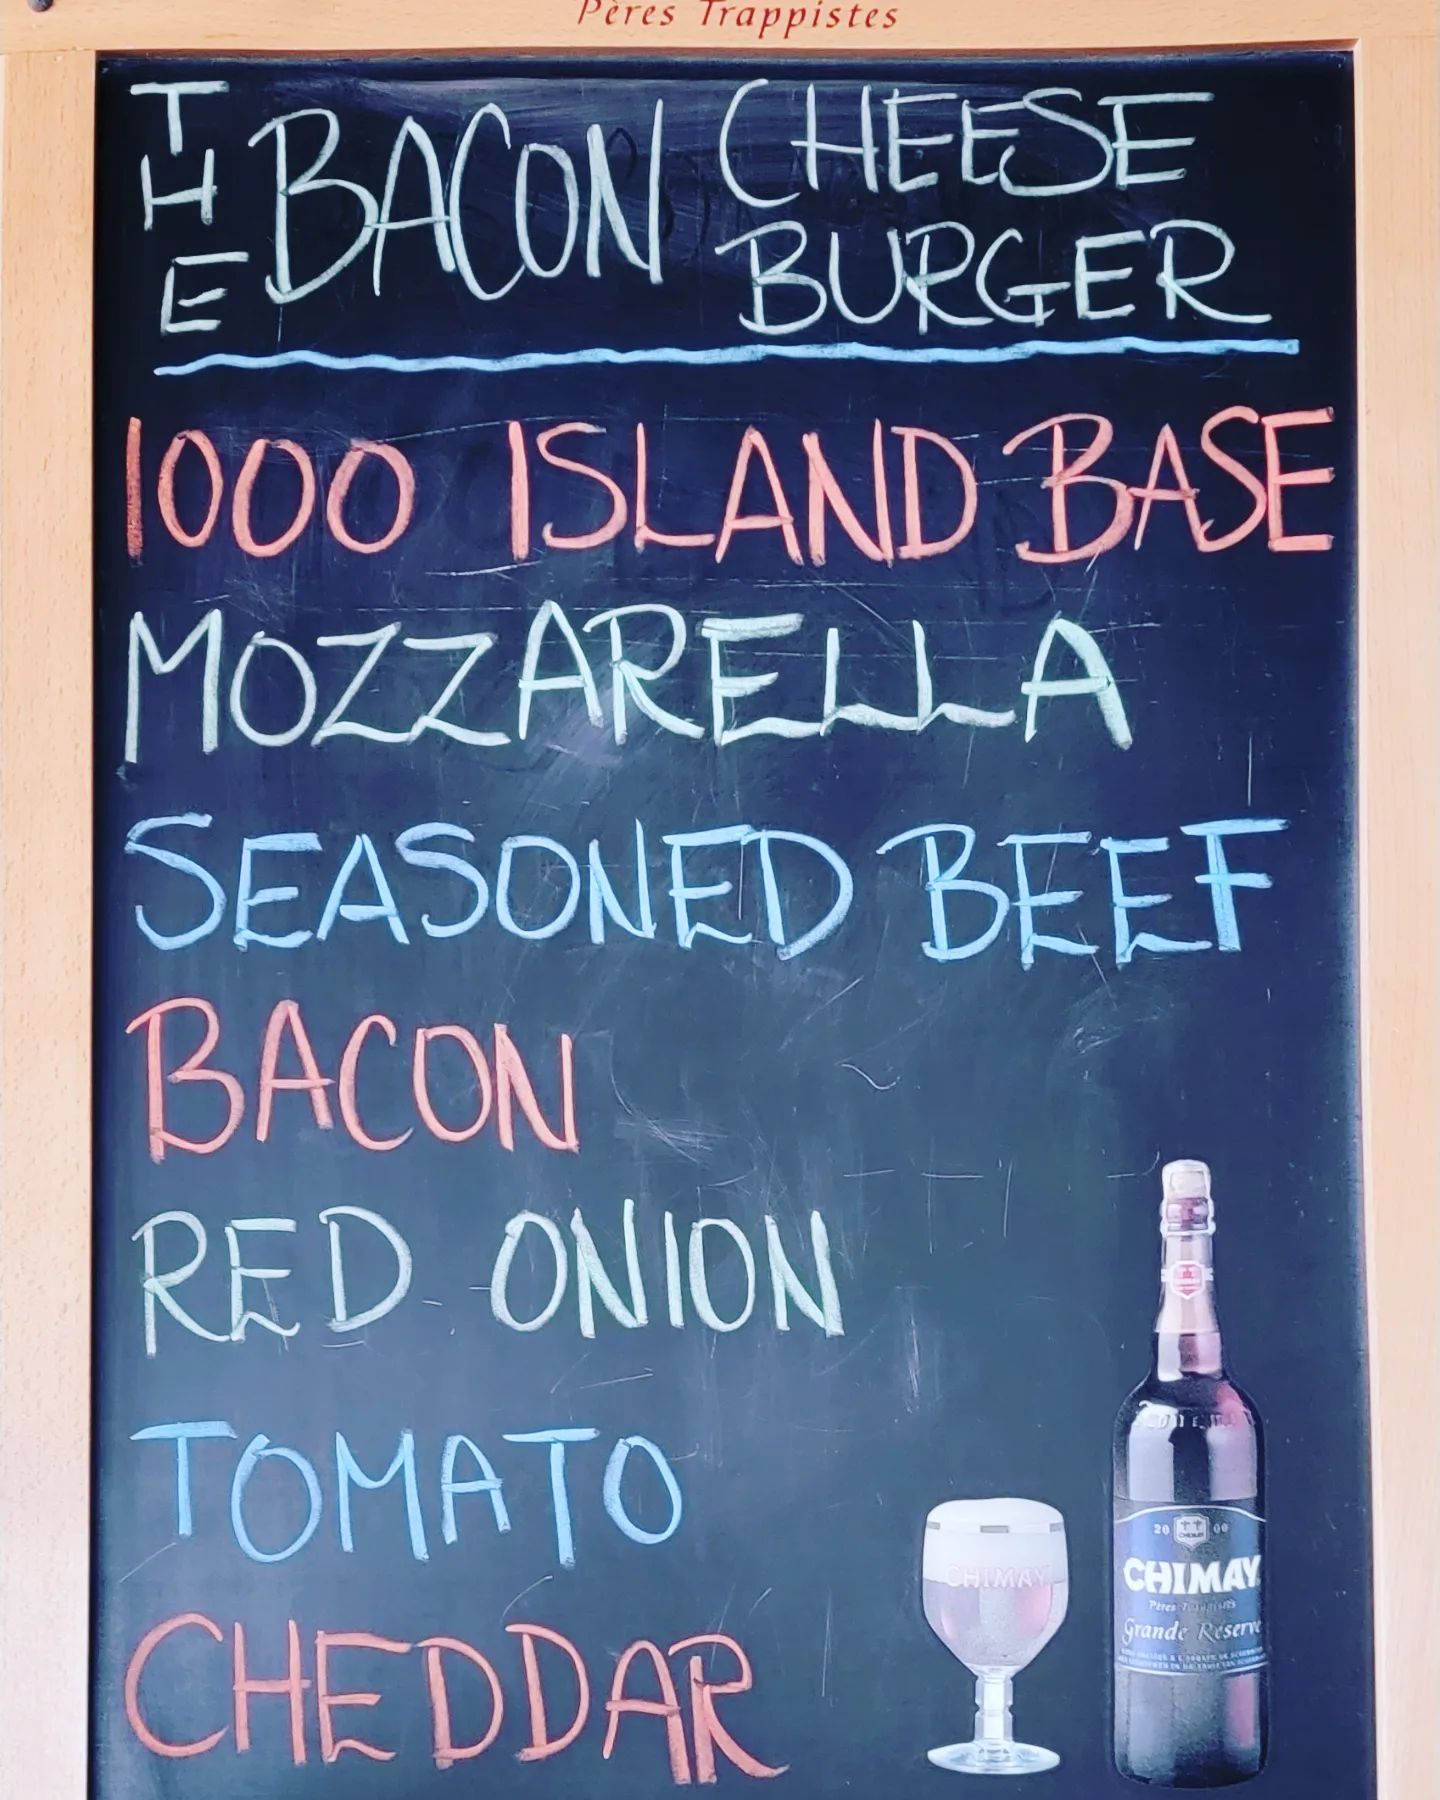 Pères Trappistes
THE BACON CHEESE BURGER
1000 ISLAND BASE
MOZZARELLA
SEASONED BEEF
BACON
RED ONION
TOMATO
CHEDDAR
CHIMAY
20 00
CHIMAY
CHIMAY
Pères Trappistes
Grande Réserve